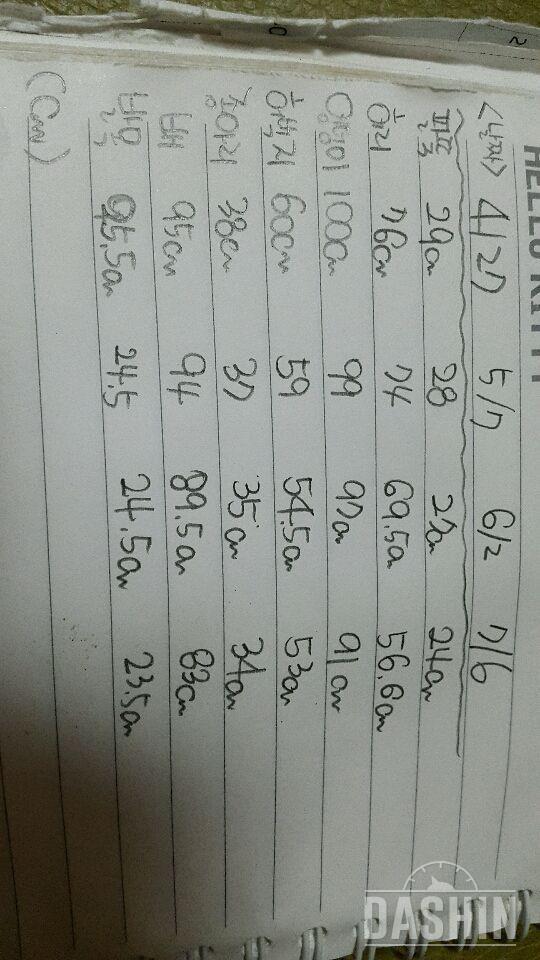 HELLO KITTY
<날짜> 4/27 5/7 6/2 7/6
팔뚝 29cm 28 27cm 24cm
허리 76cm 74 69.5cm 56.6cm
엉덩이 100cm 99 97cm 91cm
허벅지 60cm 59 54.5cm 53cm
종아리 38cm 37 35cm 34cm
배 95cm 94 89.5cm 83cm
발목 25.5cm 24.5 24.5cm 23.5cm
(cm)
DASHIN